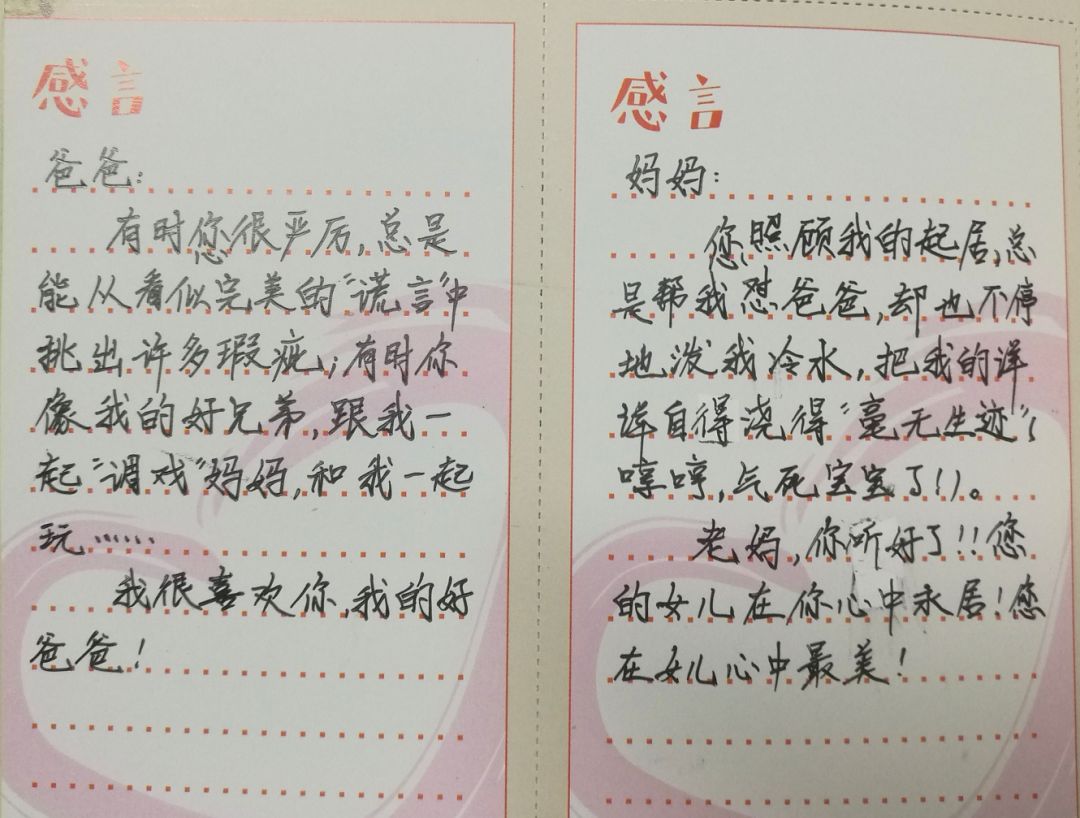 感言
爸爸:
有时您很严厉,总是
能从看似完美的“谎言”中
挑出许多瑕疵;有时你
像我的好兄弟,跟我一
起“调戏”妈妈,和我一起
玩……
我很喜欢你,我的好
爸爸!
感言
妈妈:
您照顾我的起居,总
是帮我怼爸爸,却也不停
地泼我冷水,把我的洋
洋自得浇得“毫无生迹”(
哼哼,气死宝宝了!)。
老妈,你听好了!!您
的女儿在你心中永居!您
在女儿心中最美!